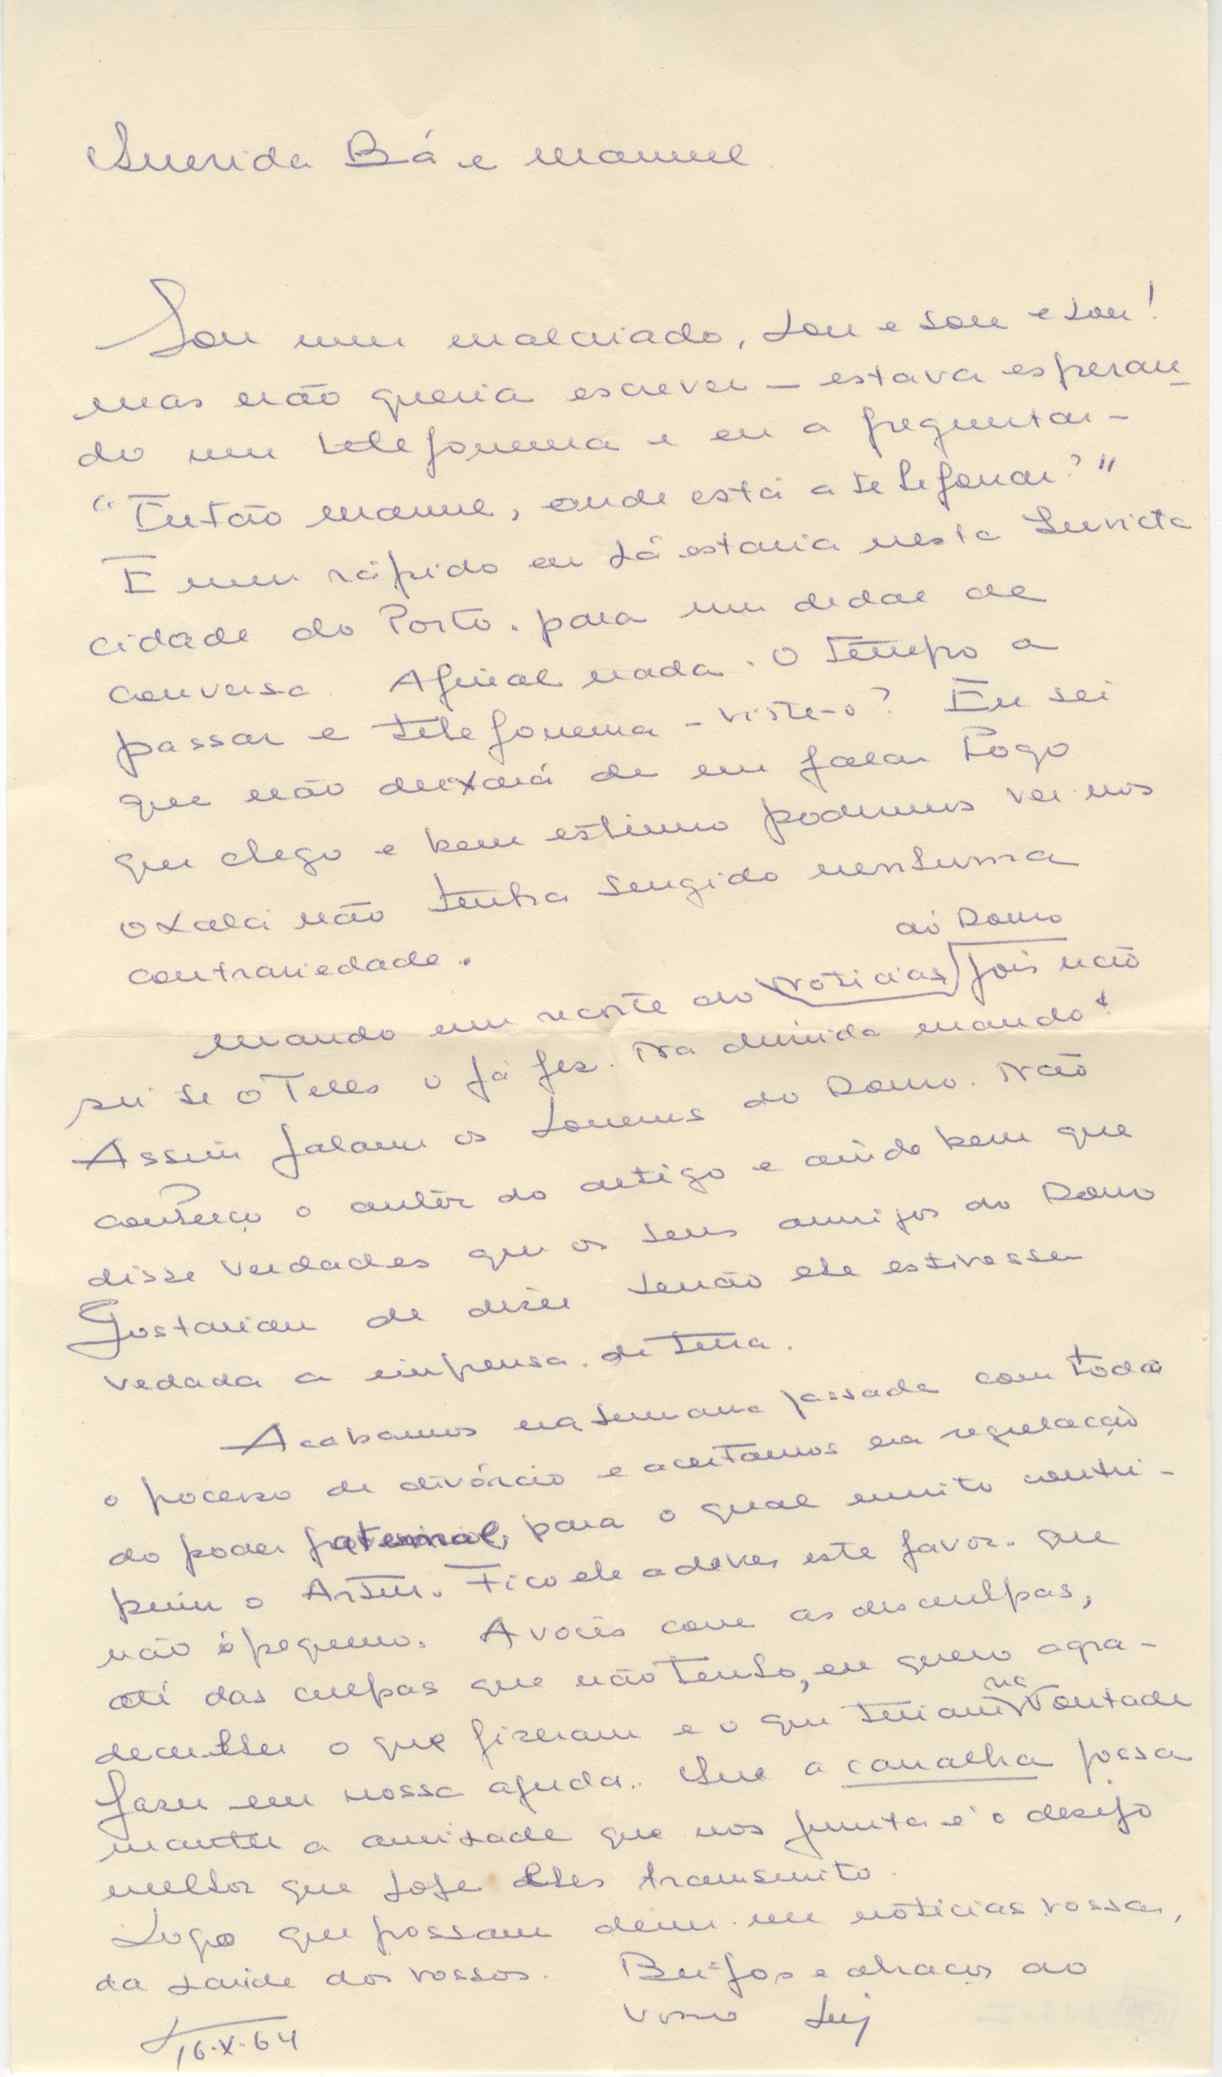 Querida Bá e Manuel
Sou um malcriado, sou e sou e sou!
mas não queria escrever – estava esperan-
do um telefonema e eu a preguntar –
"Então Manuel, onde está a telefonar?"
E num rápido eu lá estaria nesta Invicta
cidade do Porto. para um dedal de
conversa. Afinal nada. O tempo a
passar e telefonema – viste-o? Eu sei
que não deixará de me falar logo
que chego e bem estimo podermos ver-nos
oxalá não tenha surgido nenhuma
contrariedade.
ao Douro
Mando um recorte do Notícias pois não
sei se o Teles o já fez. Na dúvida mando!
Assim falam os homens do Douro. Não
conheço o autôr do artigo e ainda bem que
disse verdades que os seus amigos do Douro
Gostariam de dizer senão ele estivesse
vedada a imprensa. da terra.
Acabamos na semana passada com todo
o pocesso de divórcio e acertamos na regulação
do poder paternal, para o qual muito contri-
buiu o Artur. Fico ele a dever este favor. que
não é pequeno. A vocês com as desculpas,
até das culpas que não tenho, eu quero agra-
na
decer-lhes o que fizeram e o que teriam vontade
fazer em nossa ajuda. Que a canalha possa
manter a amizade que nos junta é o desejo
melhor que hoje lhes transmito.
Logo que possam dêem-me nóticias vossas,
da saúde dos vossos. Beijos e abraços do
vosso Luiz
16-X-64